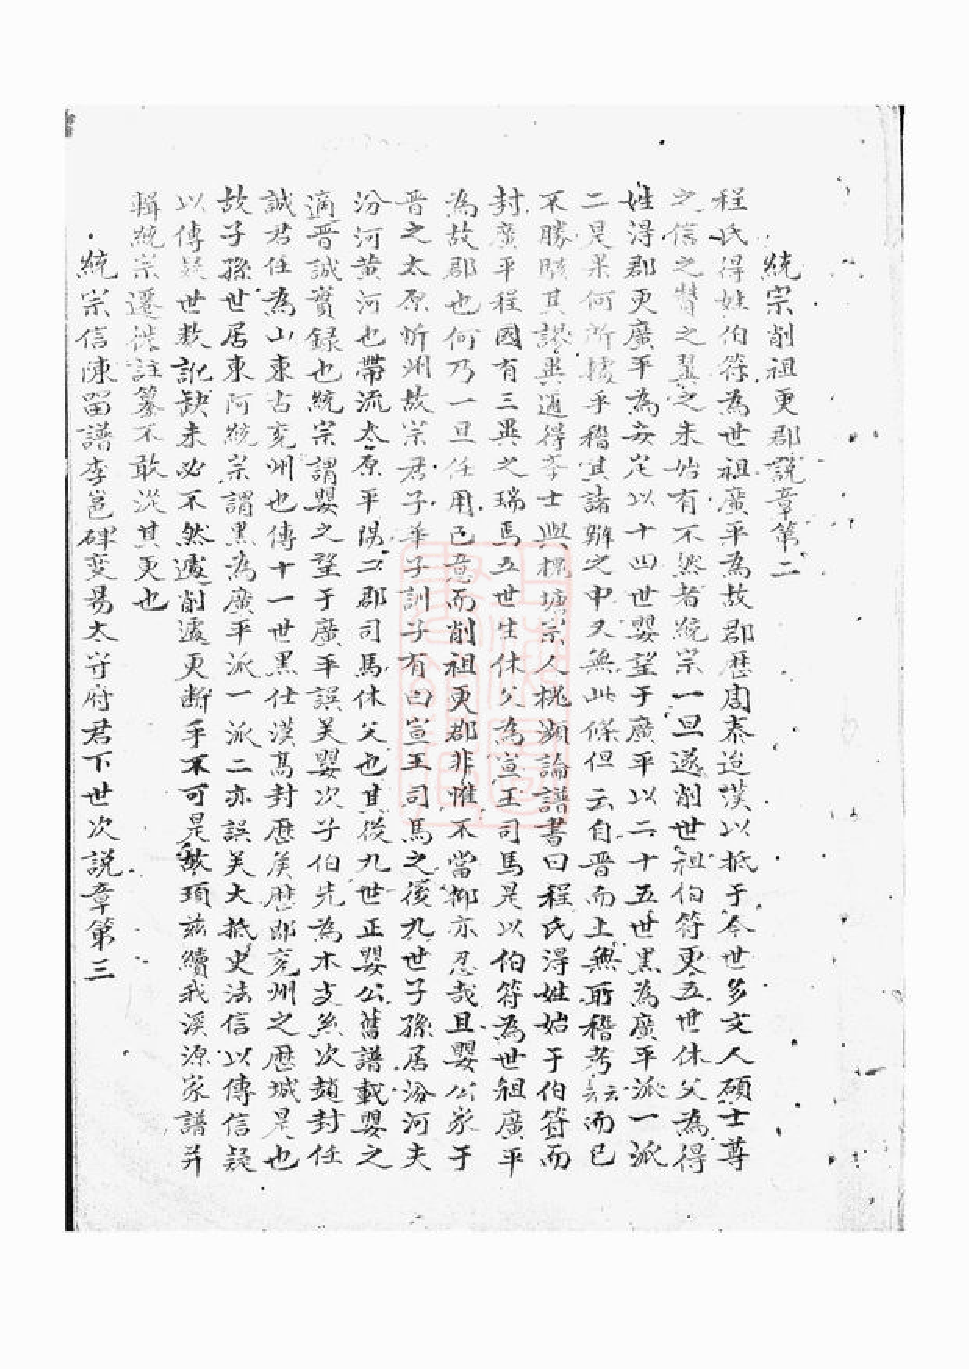 統宗削祖更郡說章第二
程氏得姓伯符為世祖廣平為故郡歷周秦迨漢以抵于今世多文人碩士尊
之信之贊之翼之未始有不然者統宗一旦遂削世祖伯符更五世休父為得
姓得郡更廣平為安定以十四世嬰望于廣平以二十五世黑為廣平派一派
二是果何所據乎稽其諸辦之中又無此條但云自晉而上無所稽考云而已
不勝駭其謬與通得李士與槐塘宗人桃源論譜書曰程氏得姓始于伯符而
封廣平程國有三異之瑞焉五世生休父為宣王司馬是以伯符為世祖廣平
為故郡也何乃一旦任用己意而削祖更郡非惟不當抑亦忍哉且嬰公家于
晉之太原忻州故宗君子華子訓子有曰宣王司馬之後九世子孫居汾河夫
汾河黃河也帶流太原平陽二郡司馬休父也其後九世正嬰公舊譜載嬰之
適晉誠實錄也統宗謂嬰之望于廣平誤矣嬰次子伯先為木支無次趙封任
誠君任為山東古兗州也傳十一世黑仕漢高封歷侯歷郎兗州之歷城是也
故子孫世居東阿統宗謂黑為廣平派一派二亦誤矣大抵史法信以傳信疑
以傳疑世数訛缺未必不然遽削遽更断手不可是故項茲續我溪源家譜并
輯統宗遷徙註纂不敢從其更也
統宗信陳留譜李邕碑变易太守府君下世次說章第三